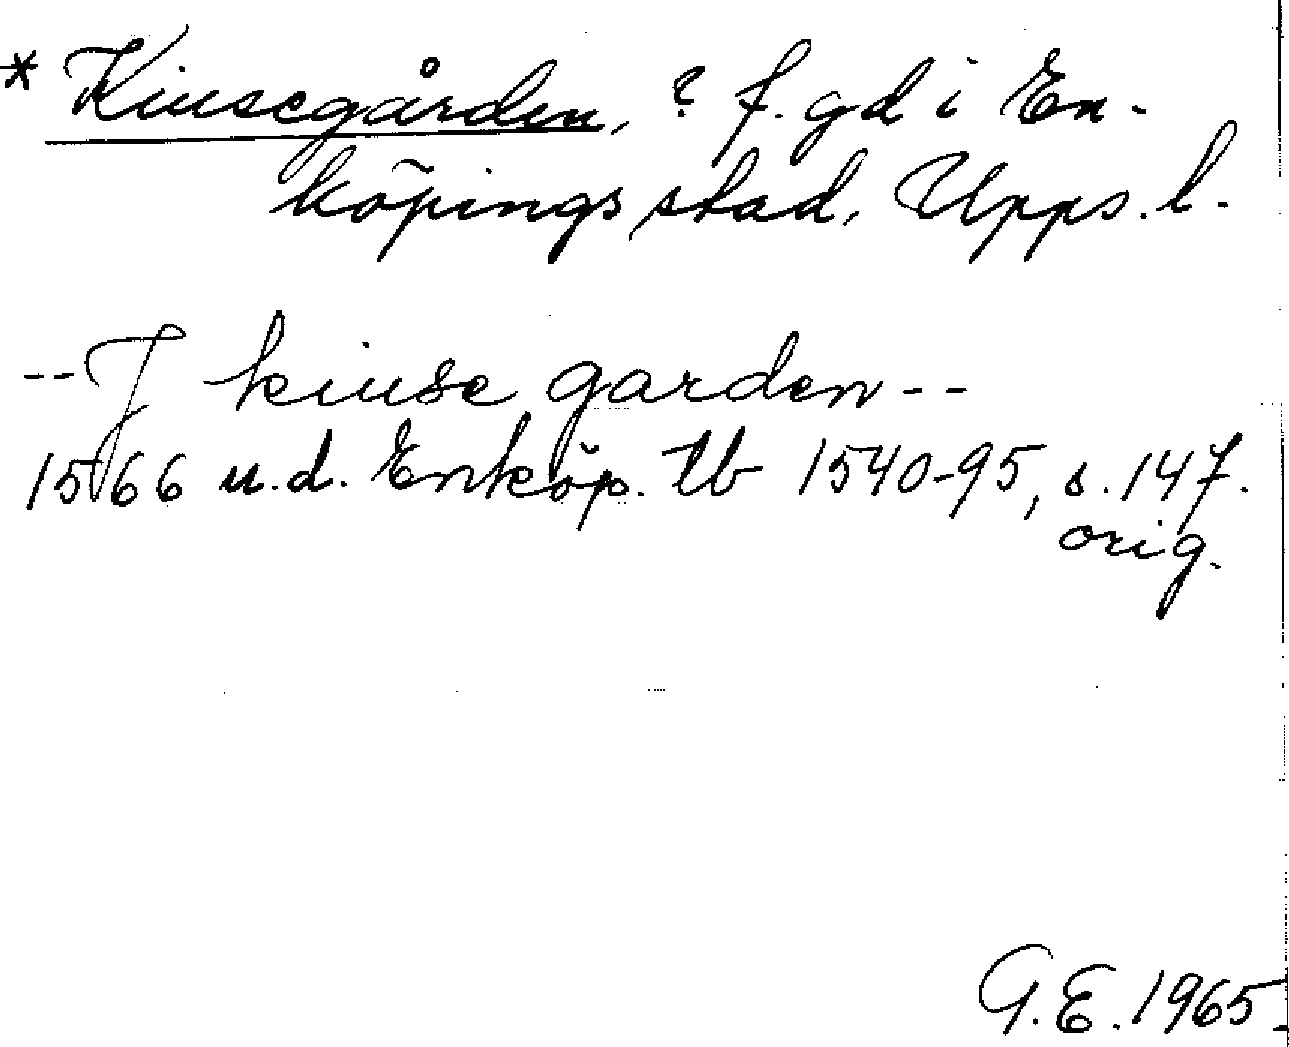 * Kiusegården, ? f. gd i En-
köpings stad, Upps. l.
-- J kiuse garden --
1566 u.d. Enköp. tb 1540-95, s. 147.
orig.
G.E. 1965.